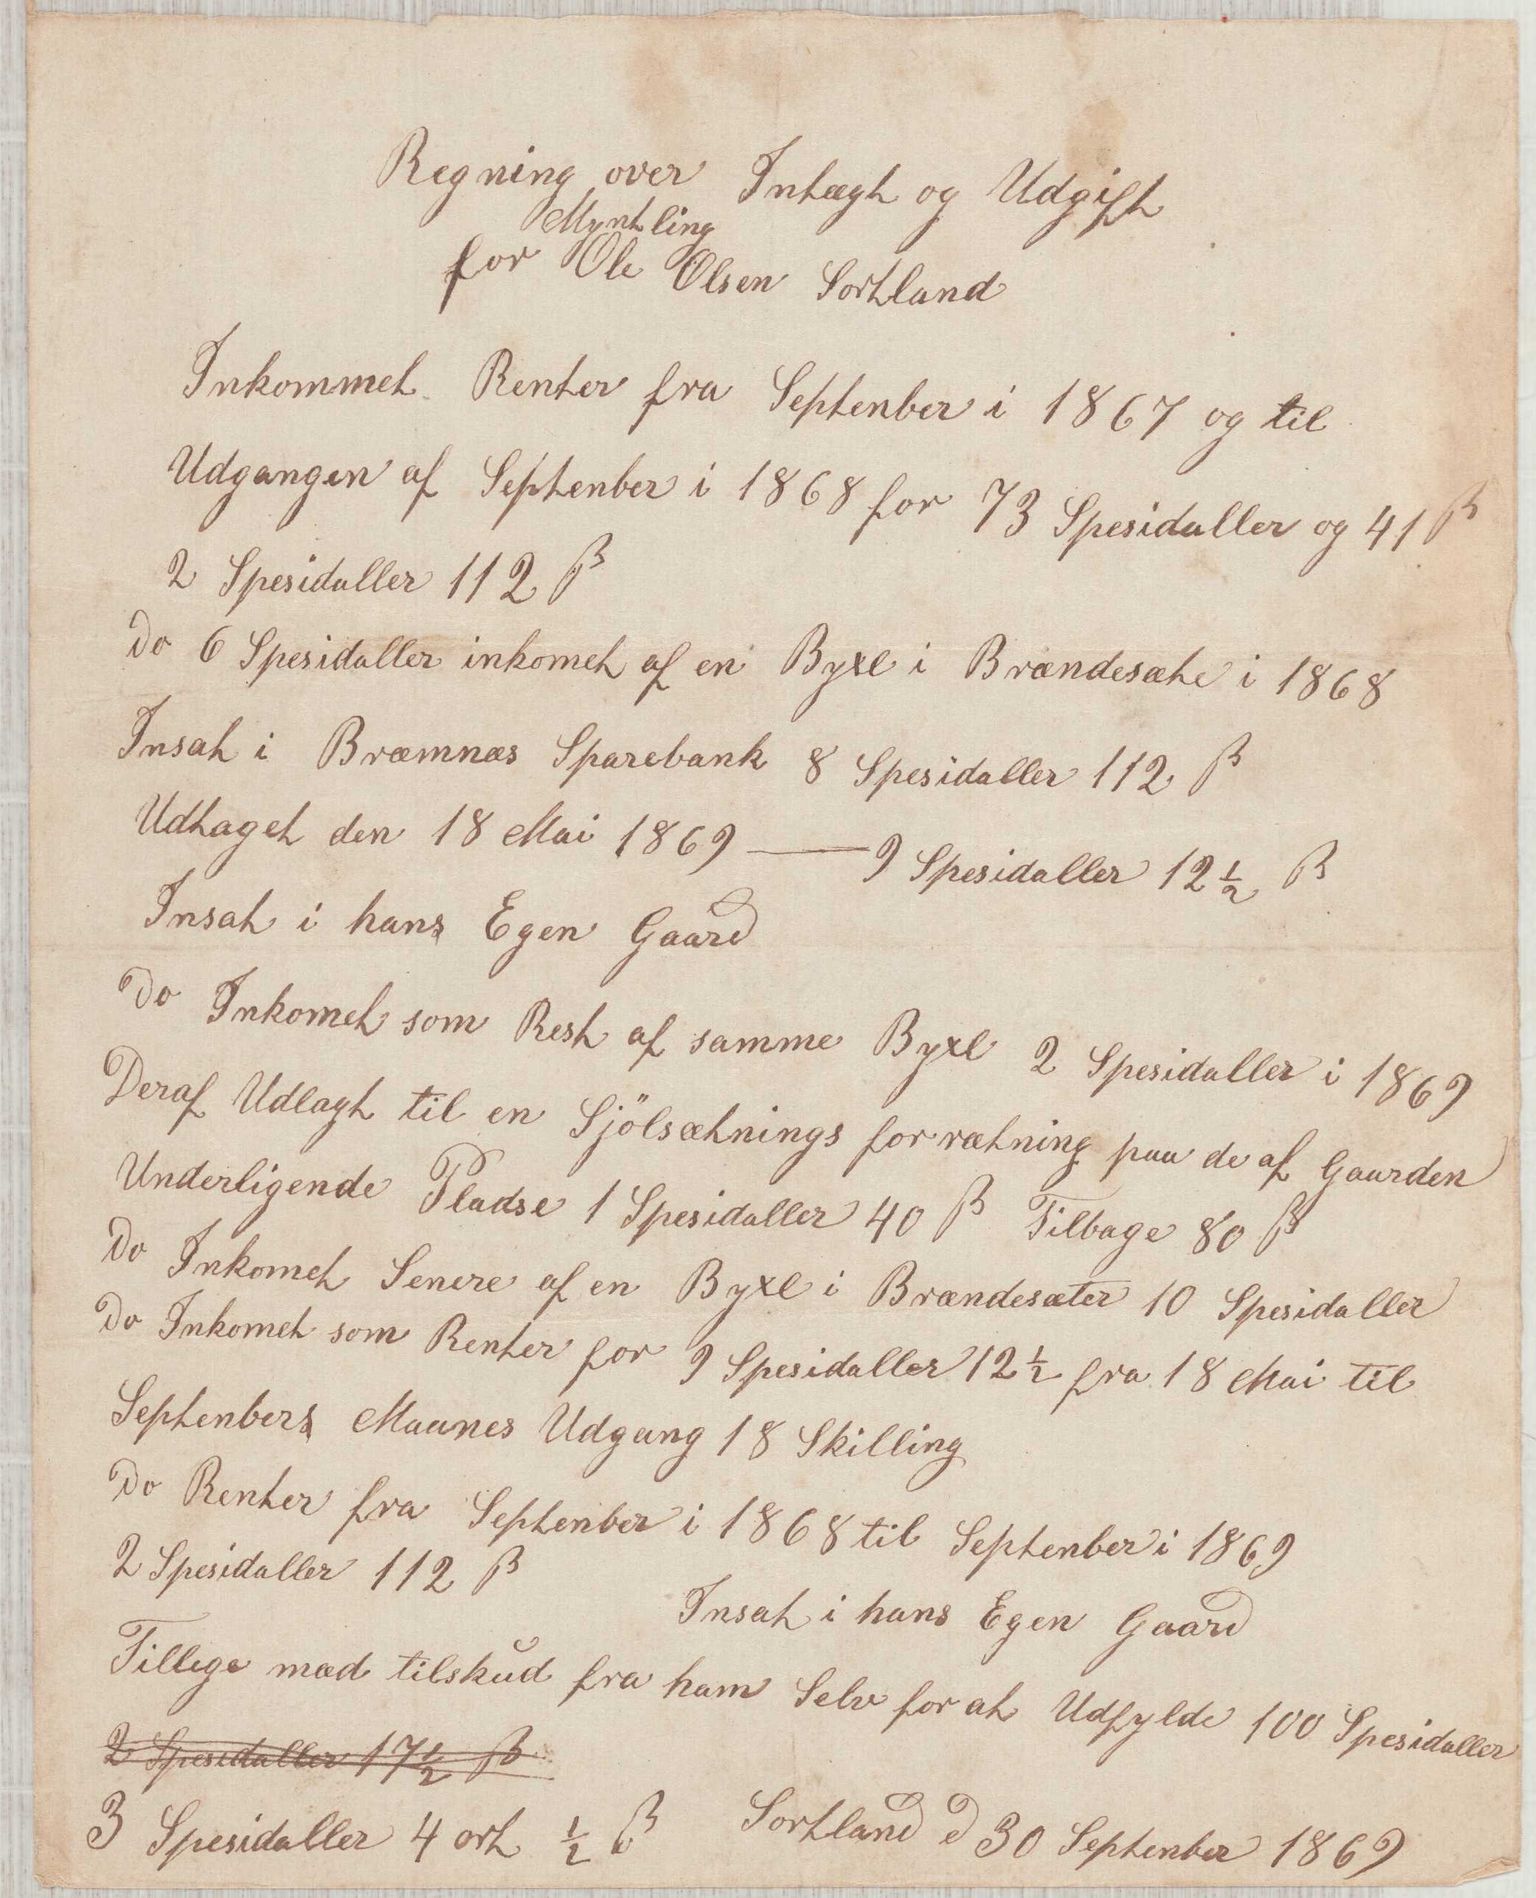 Regning over Intægt og Udgift
Myntling
for Ole Olsen Sortland
Inkommet Renter fra Septenber i 1867 og til
Udgangen af Septenber i 1868 for 73 Spesidaller og 41 ß
2 Spesidaller 112 ß
Do 6 Spesidaller inkomet af en Byxl i Brændesæte i 1868
Insat i Bræmnæs Sparebank 8 Spesidaller 112 ß
Udtaget den 18 Mai 1869 — 9 Spesidaller 12 ½ ß
Insat i hans Egen Gaard
Do Inkomet som Rest af samme Byxl 2 Spesidaller i 1869
Deraf Udlagt til en Sjölsætnings forrætning paa de af Gaarden
Underligende Pladse 1 Spesidaller 40 ß Tilbage 80 ß
Do Inkomet Senere af en Byxl i Brændesæter 10 Spesidaller
Do Inkomet som Renter for 9 Spesidaller 12 ½ fra 18 Mai til
Septenbers Maanes Udgang 18 Skilling
Do Renter fra Septenber i 1868 til Septenber i 1869
2 Spesidaller 112 ß
Insat i hans Egen Gaard
Tillige mæd tilskud fra ham Selv for at Udfylde 100 Spesidaller
2 Spesidaller 17 ½ ß
3 Spesidaller 4 ort ½ ß Sortland d 30 Septenber 1869